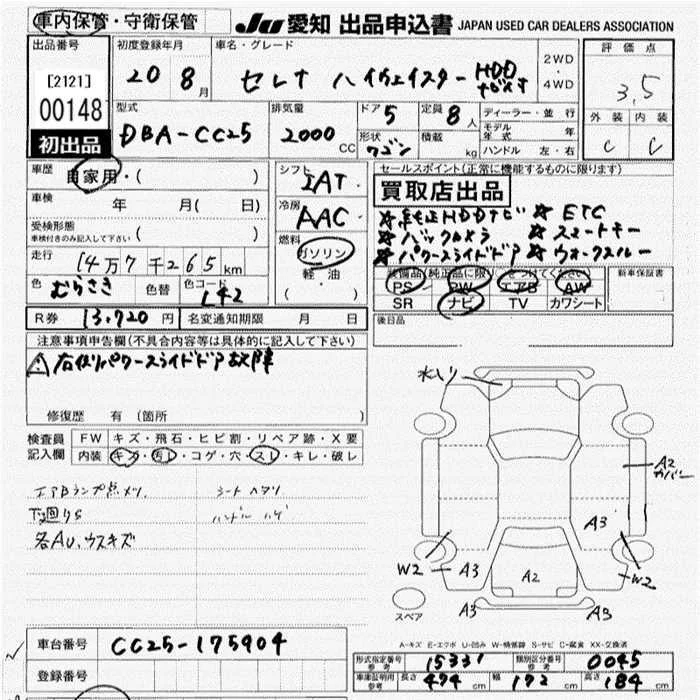 車内保管・守衛保管 JU 愛知 出品申込書 JAPAN USED CAR DEALERS ASSOCIATION
出品番号 初度登録年月 車名・グレード 評価点
[2121] 20 8月 セレナ ハイウェイスター HDDナビ 2WD・4WD 3.5
00148 型式 排気量 ドア 5 定員 8人 ディーラー・並行 外装 内装
初出品 DBA-CC25 2000 CC 形状 ワゴン 積載 kg モデル年式 年 C C
ハンドル 左・右
車歴 自家用・( ) シフト IAT セールスポイント(正常に機能するものに限ります)
買取店出品
車検 年 月( 日) 冷房 AAC ☆純正HDDナビ ☆ETC
受検形態 車検付きのみ記入して下さい ( ) 燃料 ガソリン ☆バックカメラ ☆スマートキー
☆パワースライドドア ☆ウォークスルー
走行 14万7千265km 軽・油 装備品(純正品に限)をつけてください 新車保証書
色 むらさき 色替 色コード L42 ( ) PS PW エアB AW
SR ナビ TV カワシート
R券 13,720円 名変通知期限 月 日 後日品
注意事項申告欄(不具合内容等は具体的に記入して下さい)
⚠右側パワースライドドア故障
修復歴 有 (箇所 )
検査員記入欄 FW キズ・飛石・ヒビ割・リペア跡・X要
内装 キズ・汚レ・コゲ・穴・スレ・キレ・破レ
エアBランプ点メツ シートヘタリ
下廻りS ハンドルハゲ
各AU.ウスキズ
水シリ
A2 カバー
A3
W2 A3 A2 W2
スペア A3 A3
A-キズ E-エクボ U-凹み W-補修跡 S-サビ C-腐食 XX-交換済
車台番号 CC25-175904
形式指定番号 参考 15331 類別区分番号 参考 0045
登録番号
車庫証明用 参考 長さ 474 cm 幅 172 cm 高さ 184 cm